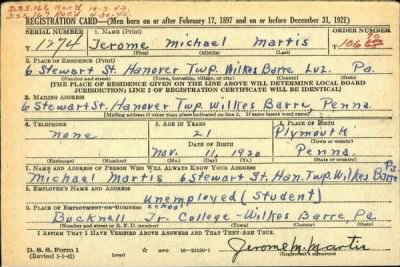 REGISTRATION CARD—(Men born on or after February 17, 1897 and on or before December 31, 1921)
SERIAL NUMBER
1. NAME (Print)
ORDER NUMBER
1774
Jerome Michael Martis
(First) (Middle) (Last)
2. PLACE OF RESIDENCE (Print)
6 Stewart St. Hanover Twp. Wilkes Barre Luz. Pa.
(Number and street) (Town, township, village, or city) (County) (State)
[THE PLACE OF RESIDENCE GIVEN ON THE LINE ABOVE WILL DETERMINE LOCAL BOARD
JURISDICTION; LINE 2 OF REGISTRATION CERTIFICATE WILL BE IDENTICAL]
3. MAILING ADDRESS
6 Stewart St. Hanover Twp. Wilkes Barre, Penna
[Mailing address if other than place indicated on line 2. If same insert word same]
4. TELEPHONE
5. AGE IN YEARS
6. PLACE OF BIRTH
none
21
Plymouth
DATE OF BIRTH
(Town or county)
Nov. 11, 1920
Penna.
(Exchange) (Number)
(Mo.) (Day) (Yr.)
(State or country)
7. NAME AND ADDRESS OF PERSON WHO WILL ALWAYS KNOW YOUR ADDRESS
Michael Martis 6 Stewart St. Han. Twp. Wilkes Barre Pa.
8. EMPLOYER'S NAME AND ADDRESS
Unemployed (Student)
9. PLACE OF EMPLOYMENT OR BUSINESS
school
Bucknell Jr. College - Wilkes Barre, Pa.
(Number and street or R. F. D. number) (Town) (County) (State)
I AFFIRM THAT I HAVE VERIFIED ABOVE ANSWERS AND THAT THEY ARE TRUE.
D. S. S. Form 1
(Revised 1-1-42)
Jerome M. Martis
(Registrant's signature)